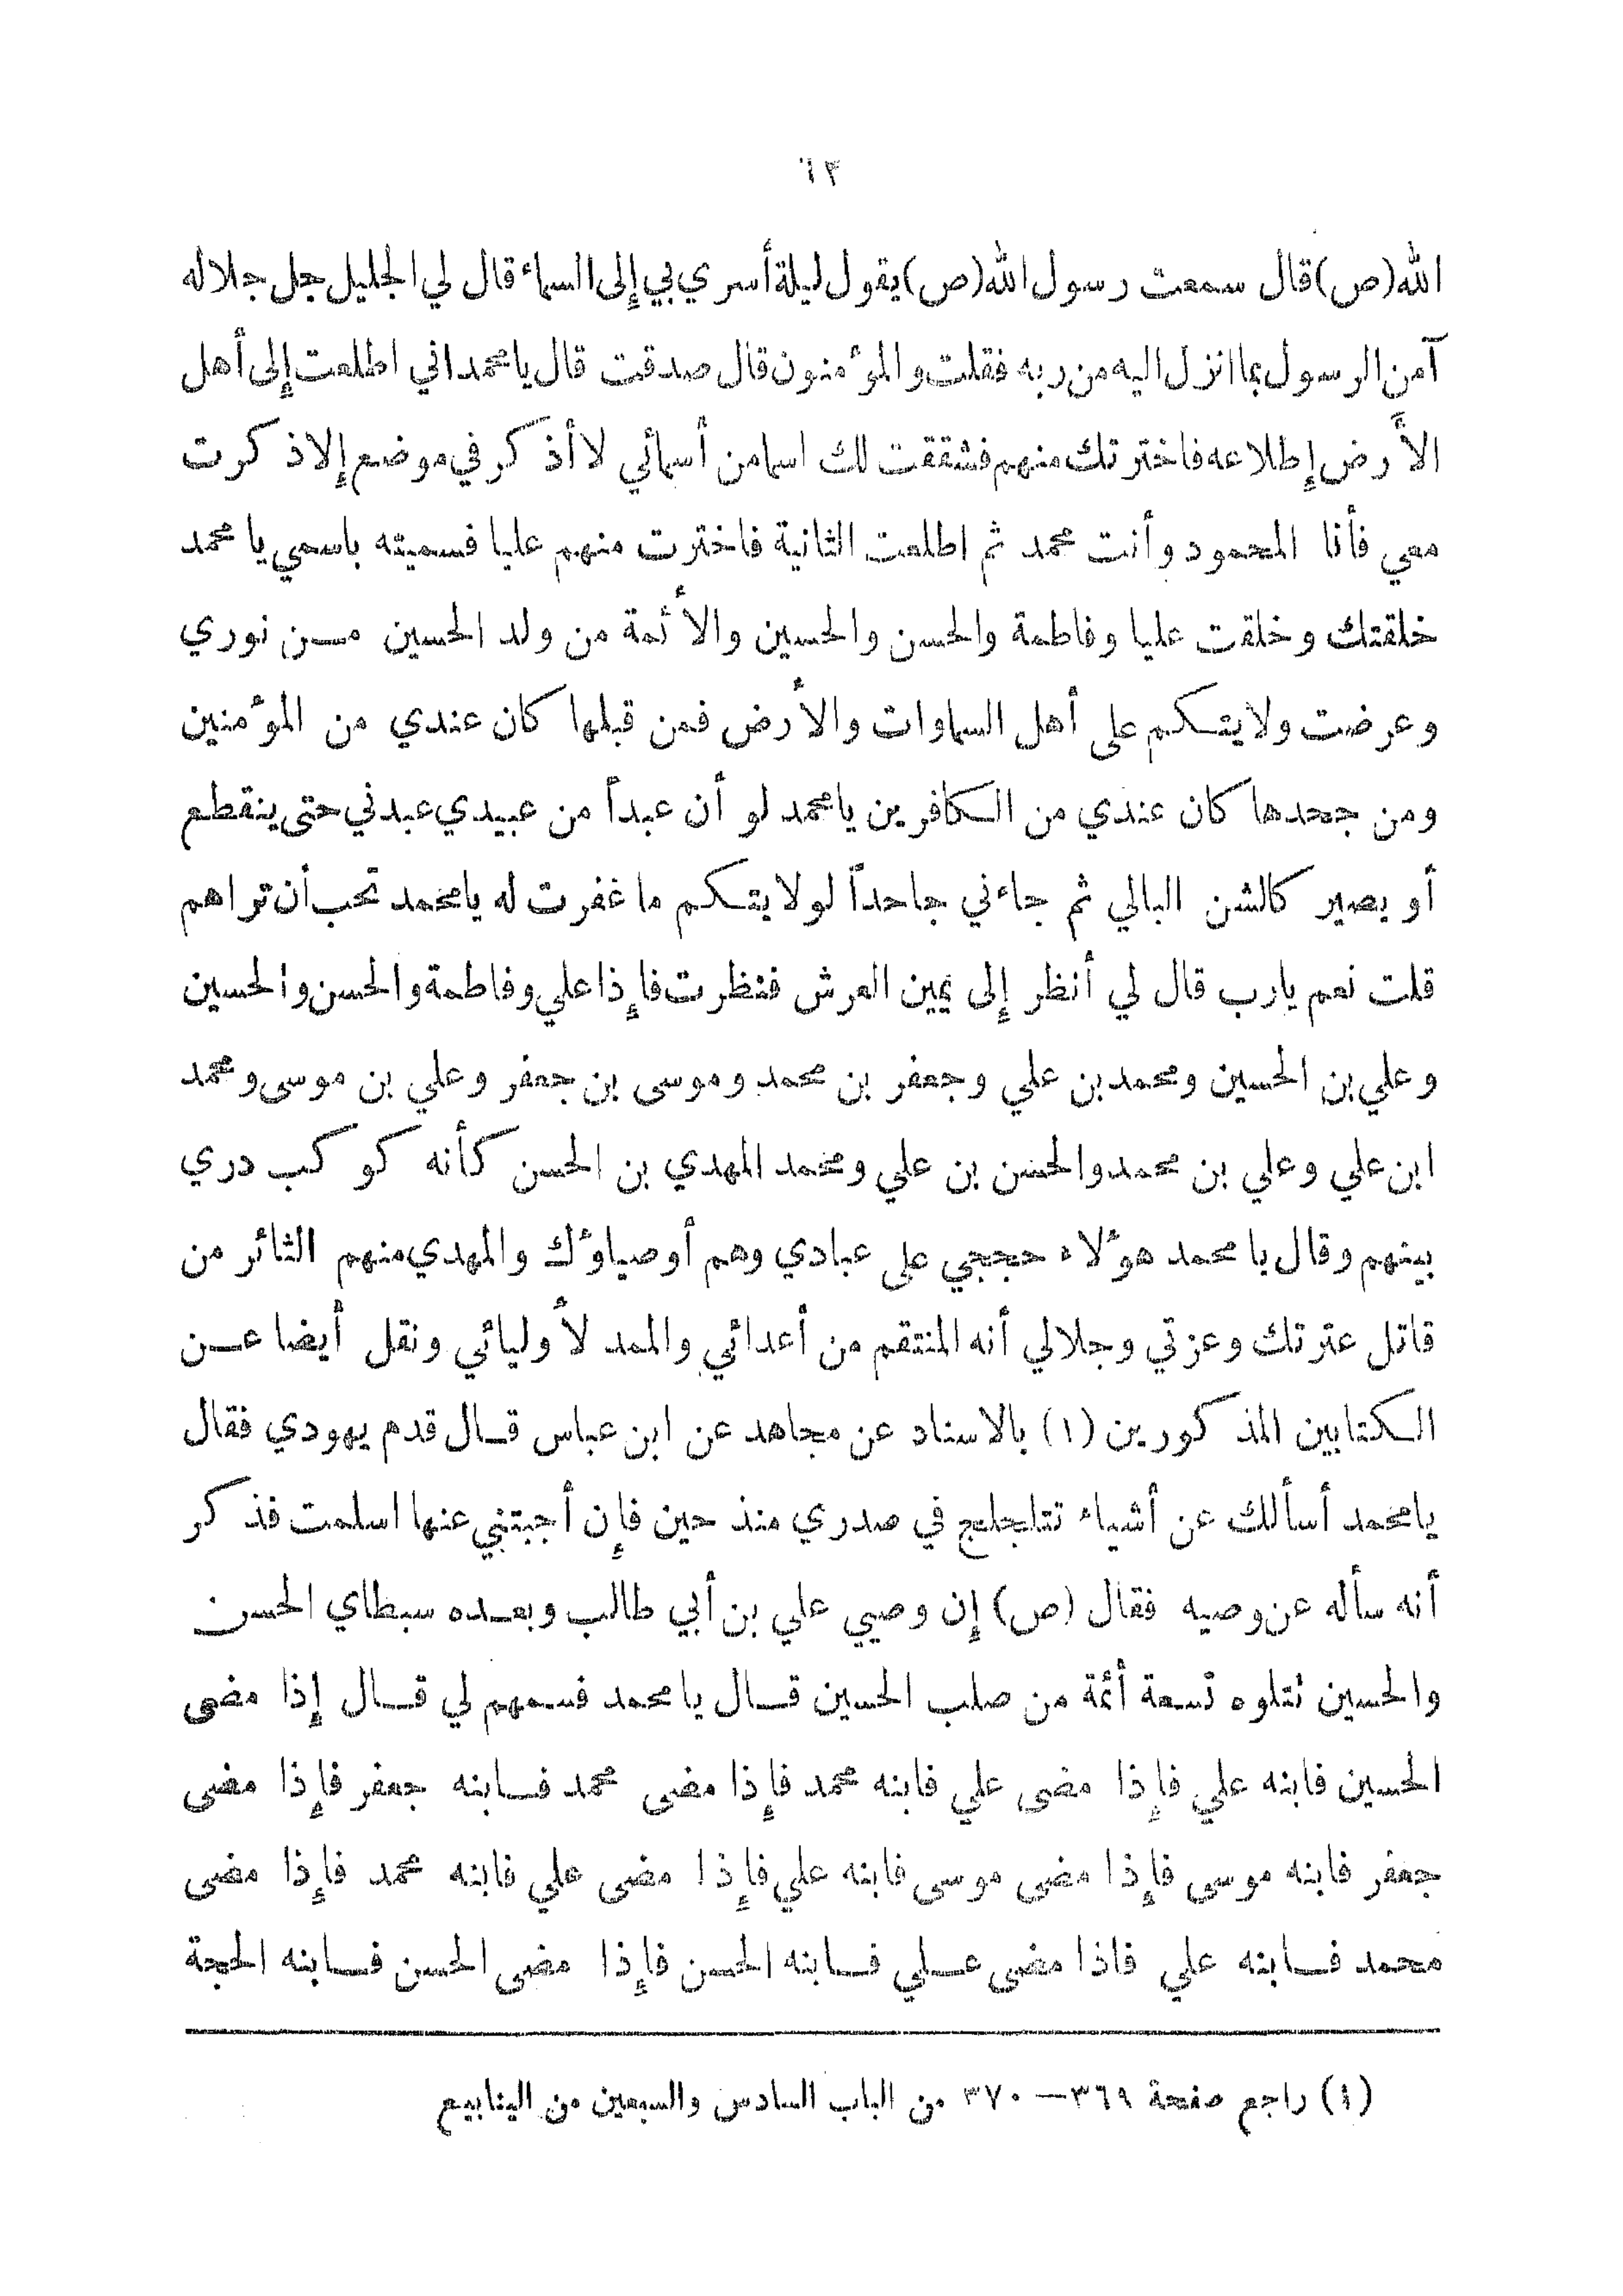 ٦٣
الله (ص) قال سمعت رسول الله (ص) يقول ليلة أسري بي إلى السماء قال لي الجليل جل جلاله
آمن الرسول بما انزل اليه من ربه فقلت والمؤمنون قال صدقت قال يا محمد اني اطلعت إلى أهل
الأرض إطلاعه فاخترتك منهم فشققت لك اسما من أسمائي لا أذكر في موضع إلا ذكرت
معي فأنا المحمود وأنت محمد ثم اطلعت الثانية فاخترت منهم عليا فسميته باسمي يا محمد
خلقتك وخلقت عليا وفاطمة والحسن والحسين والأئمة من ولد الحسين من نوري
وعرضت ولايتكم على أهل السماوات والأرض فمن قبلها كان عندي من المؤمنين
ومن جحدها كان عندي من الكافرين يا محمد لو أن عبداً من عبيدي عبدني حتى ينقطع
أو يصير كالشن البالي ثم جاءني جاحداً لولايتكم ما غفرت له يا محمد تحب أن تراهم
قلت نعم يارب قال لي أنظر إلى يمين العرش فنظرت فإذا علي وفاطمة والحسن والحسين
وعلي بن الحسين ومحمد بن علي وجعفر بن محمد وموسى بن جعفر وعلي بن موسى ومحمد
ابن علي وعلي بن محمد والحسن بن علي ومحمد المهدي بن الحسن كأنه كوكب دري
بينهم وقال يا محمد هؤلاء حججي على عبادي وهم أوصياؤك والمهدي منهم الثائر من
قاتل عترتك وعزتي وجلالي أنه المنتقم من أعدائي والممد لأوليائي ونقل أيضا عن
الكتابين المذكورين (١) بالاسناد عن مجاهد عن ابن عباس قال قدم يهودي فقال
يا محمد أسألك عن أشياء تتلجلج في صدري منذ حين فإن أجبتني عنها اسلمت فذكر
أنه سأله عن وصيه فقال (ص) إن وصيي علي بن أبي طالب وبعده سبطاي الحسن
والحسين تتلوه تسعة أئمة من صلب الحسين قال يا محمد فسمهم لي قال إذا مضى
الحسين فابنه علي فإذا مضى علي فابنه محمد فإذا مضى محمد فابنه جعفر فإذا مضى
جعفر فابنه موسى فإذا مضى موسى فابنه علي فإذا مضى علي فابنه محمد فإذا مضى
محمد فابنه علي فاذا مضى علي فابنه الحسن فإذا مضى الحسن فابنه الحجة
(١) راجع صفحة ٣٦٩ — ٣٧٠ من الباب السادس والسبعين من الينابيع